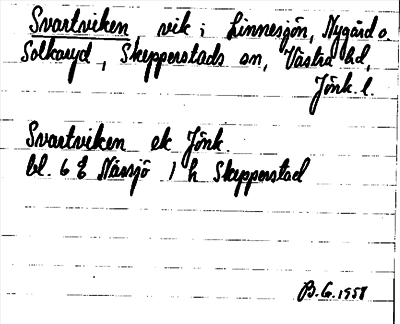 Svartviken, vik i Linnesjön, Nygård o.
Solkaryd, Skepperstads sn, Västra hd,
Jönk. l.
Svartviken ek Jönk.
bl. 6 E Nässjö 1 h Skepperstad
B.G. 1958